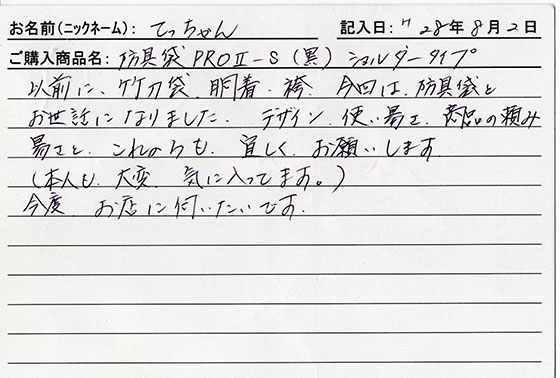 お名前(ニックネーム): てっちゃん 記入日: H28年8月2日
ご購入商品名: 防具袋PROⅡ-S(黒)ショルダータイプ
以前に、竹刀袋、胴着、袴、今回は、防具袋と
お世話になりました。 デザイン、使い易さ、商品の頼み
易さと、これからも、宜しく、お願いします。
(本人も、大変、気に入ってます。)
今度、お店に伺いたいです。